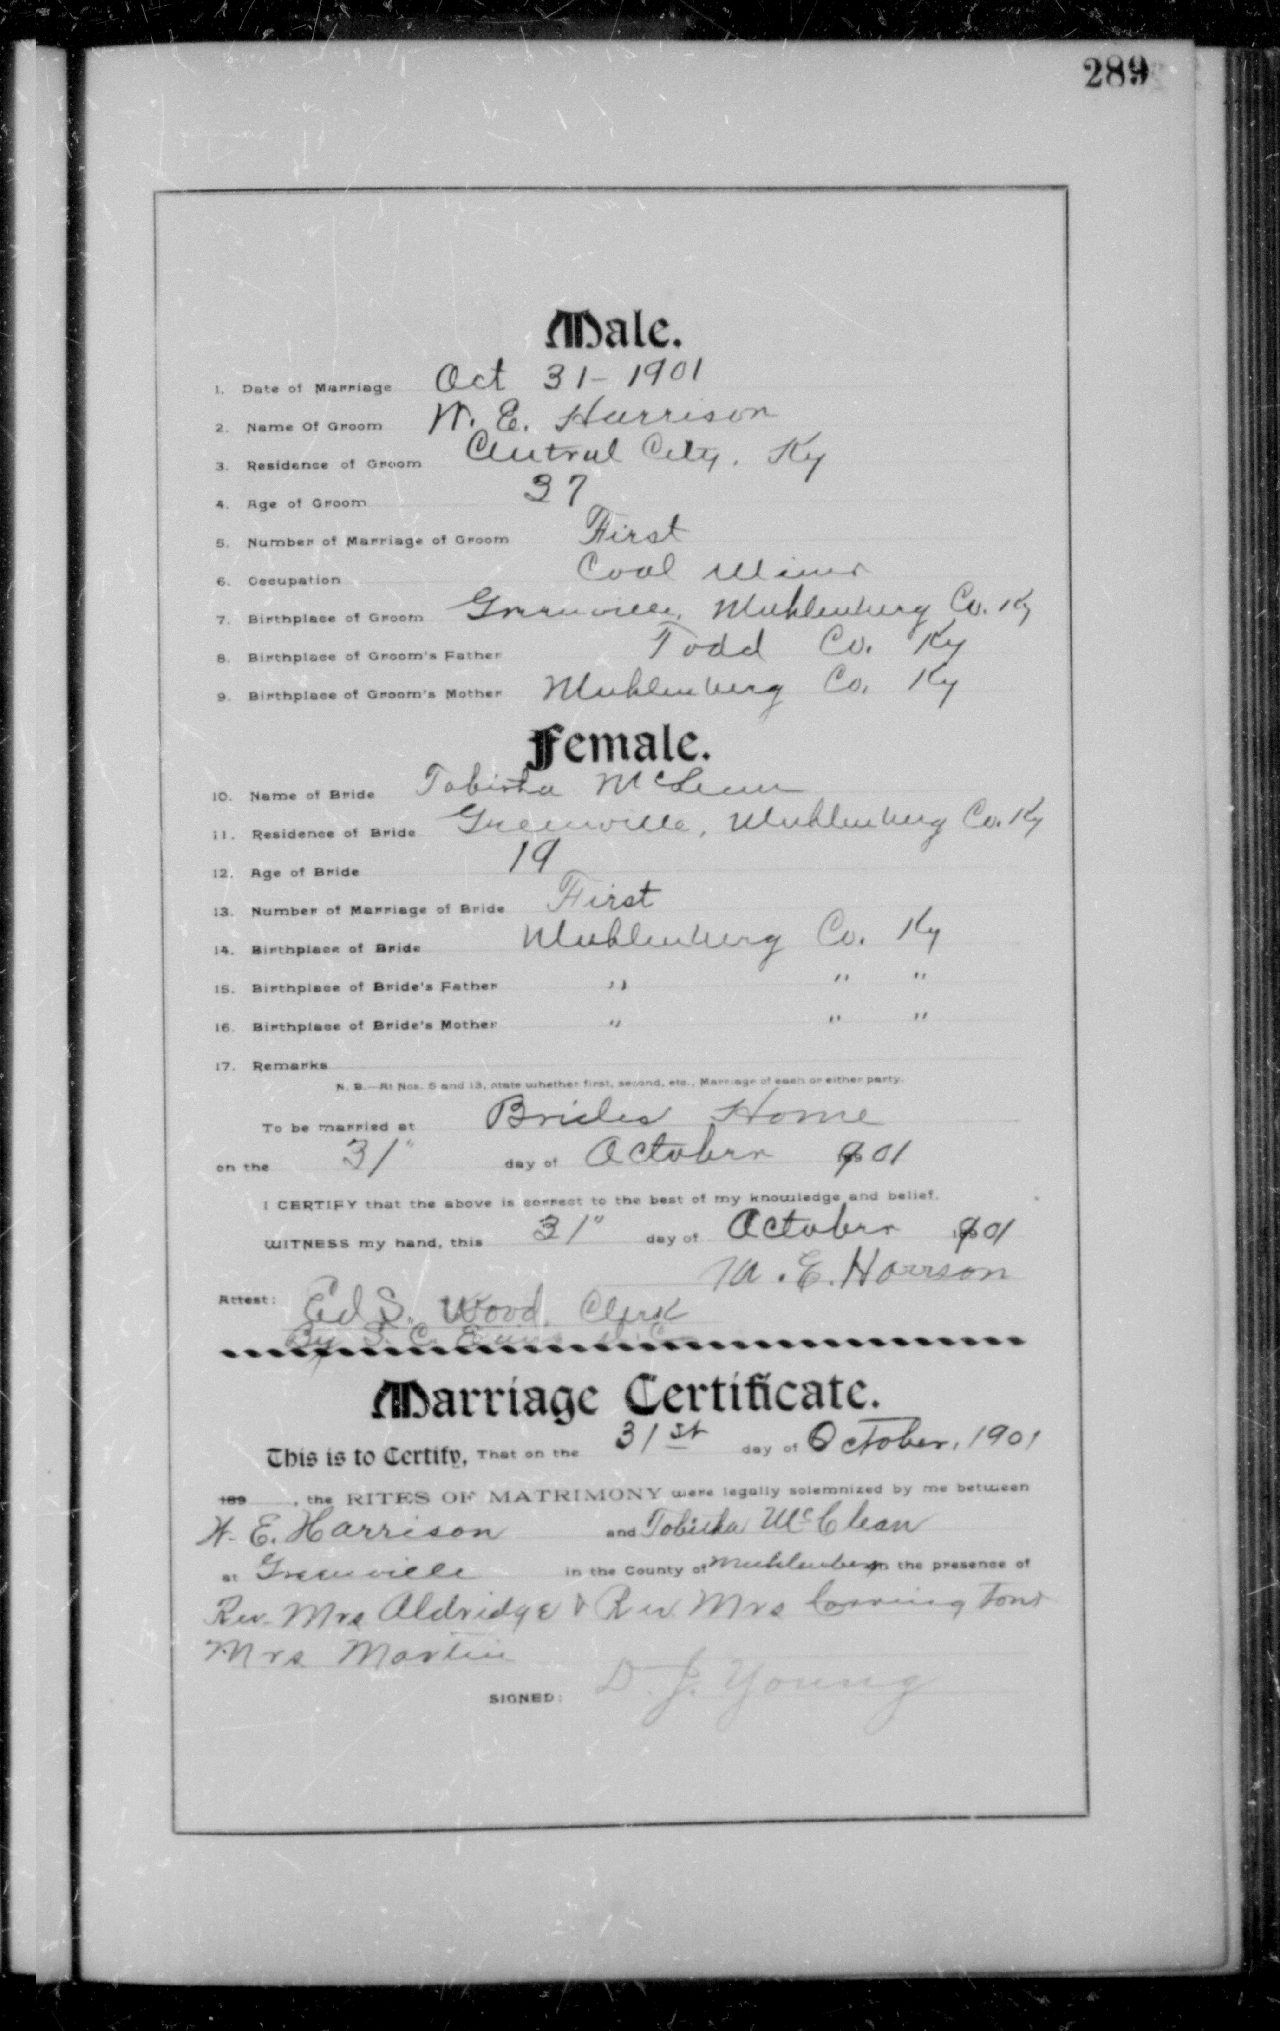 289
Male.
1. Date of Marriage Oct 31-1901
2. Name Of Groom W. E. Harrison
3. Residence of Groom Central City, Ky
4. Age of Groom 37
5. Number of Marriage of Groom First
6. Occupation Coal Miner
7. Birthplace of Groom Greenville, Muhlenberg Co. Ky
8. Birthplace of Groom's Father Todd Co. Ky
9. Birthplace of Groom's Mother Muhlenberg Co. Ky
Female.
10. Name of Bride Tobitha McLean
11. Residence of Bride Greenville, Muhlenberg Co. Ky
12. Age of Bride 19
13. Number of Marriage of Bride First
14. Birthplace of Bride Muhlenberg Co. Ky
15. Birthplace of Bride's Father " " "
16. Birthplace of Bride's Mother " " "
17. Remarks
N. B.—At Nos. 5 and 13, state whether first, second, etc., Marriage of each or either party.
To be married at Brides Home
on the 31" day of October 1901
I CERTIFY that the above is correct to the best of my knowledge and belief.
WITNESS my hand, this 31" day of October 1901
W. E. Harrson
Attest: Ed S. Wood, Clerk
By S. C. Evans D.C.
Marriage Certificate.
This is to Certify, That on the 31st day of October, 1901
189 , the RITES OF MATRIMONY were legally solemnized by me between
W. E. Harrison and Tobitha McClean
at Greenville in the County of Muhlenberg in the presence of
Rev. Mrs Aldridge & Rev. Mrs Covington
Mrs Martin
SIGNED: D. J. Young